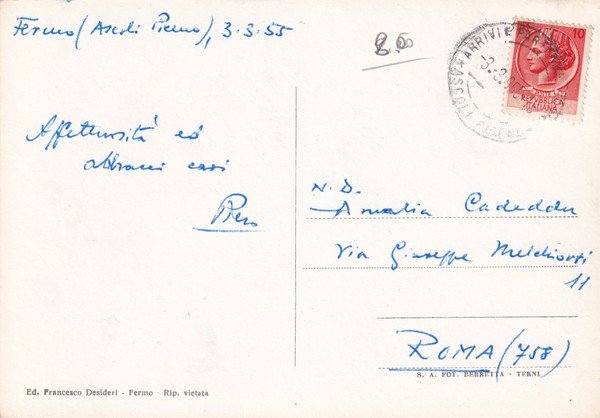 Fermo (Ascoli Piceno), 3.3.55
Affettuosità ed
abbracci cari
Piero
10
REPUBBLICA
ITALIANA
ARRIVI E PARTENZE
N. D.
Amalia Cadeddu
Via Giuseppe Melchiorri
11
ROMA (758)
Ed. Francesco Desideri - Fermo - Rip. vietata
S. A. FOT. BERRETTA - TERNI